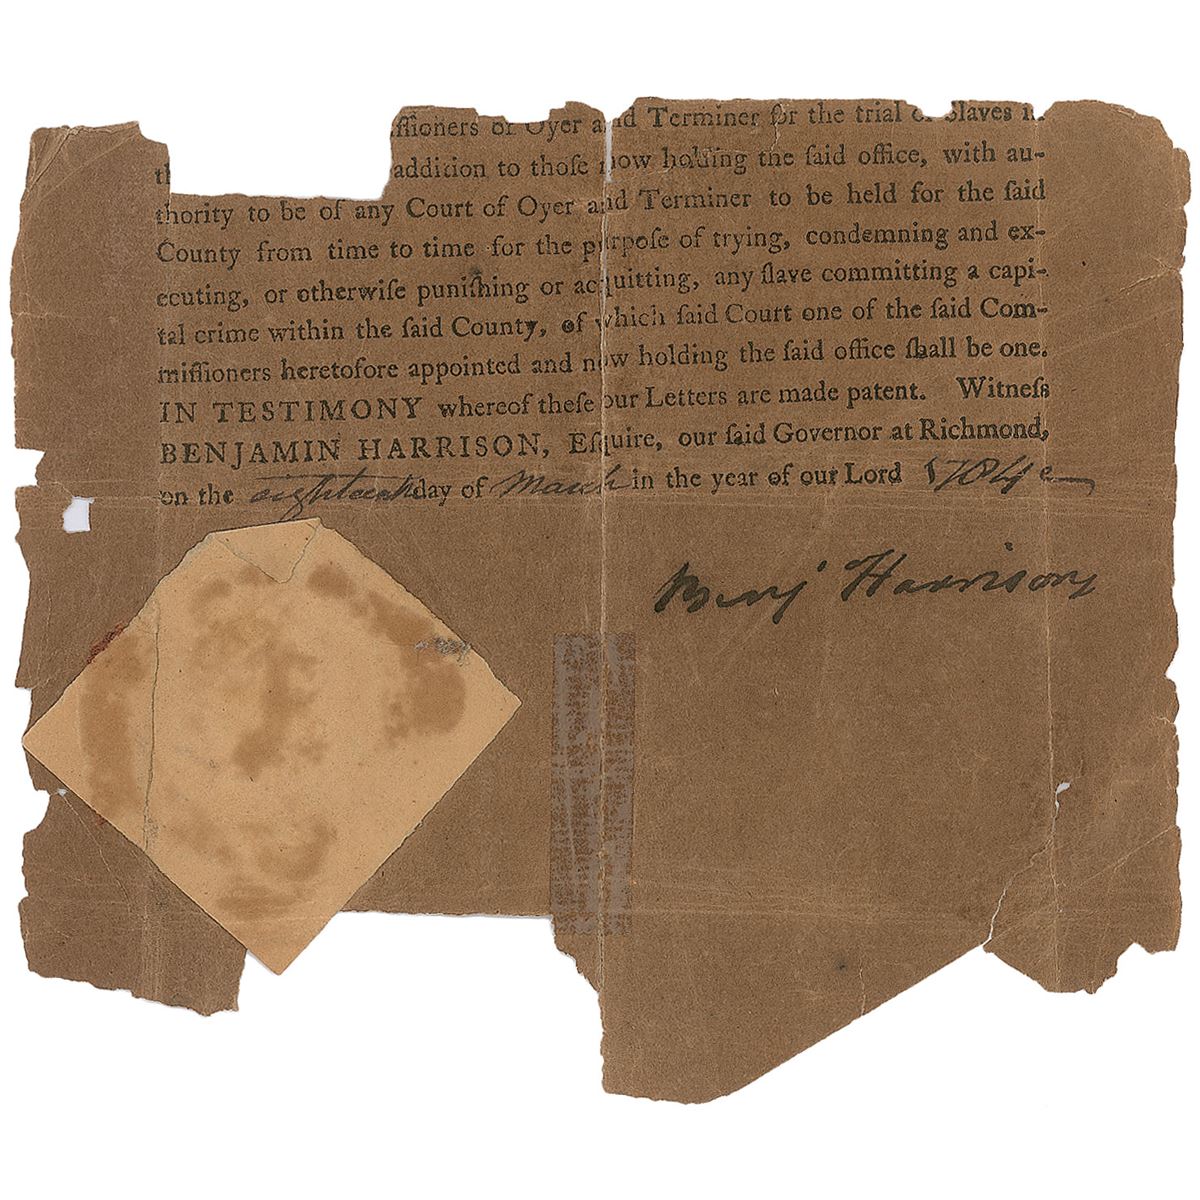 iſſioners of Oyer and Terminer for the trial of Slaves in
addition to thoſe now holding the ſaid office, with au-
thority to be of any Court of Oyer and Terminer to be held for the ſaid
County from time to time for the purpoſe of trying, condemning and ex-
ecuting, or otherwiſe puniſhing or acquitting, any ſlave committing a capi-
tal crime within the ſaid County, of which ſaid Court one of the ſaid Com-
miſſioners heretofore appointed and now holding the ſaid office ſhall be one.
IN TESTIMONY whereof theſe our Letters are made patent. Witneſs
BENJAMIN HARRISON, Eſquire, our ſaid Governor at Richmond,
on the eighteenth day of March in the year of our Lord
Benj Harrison